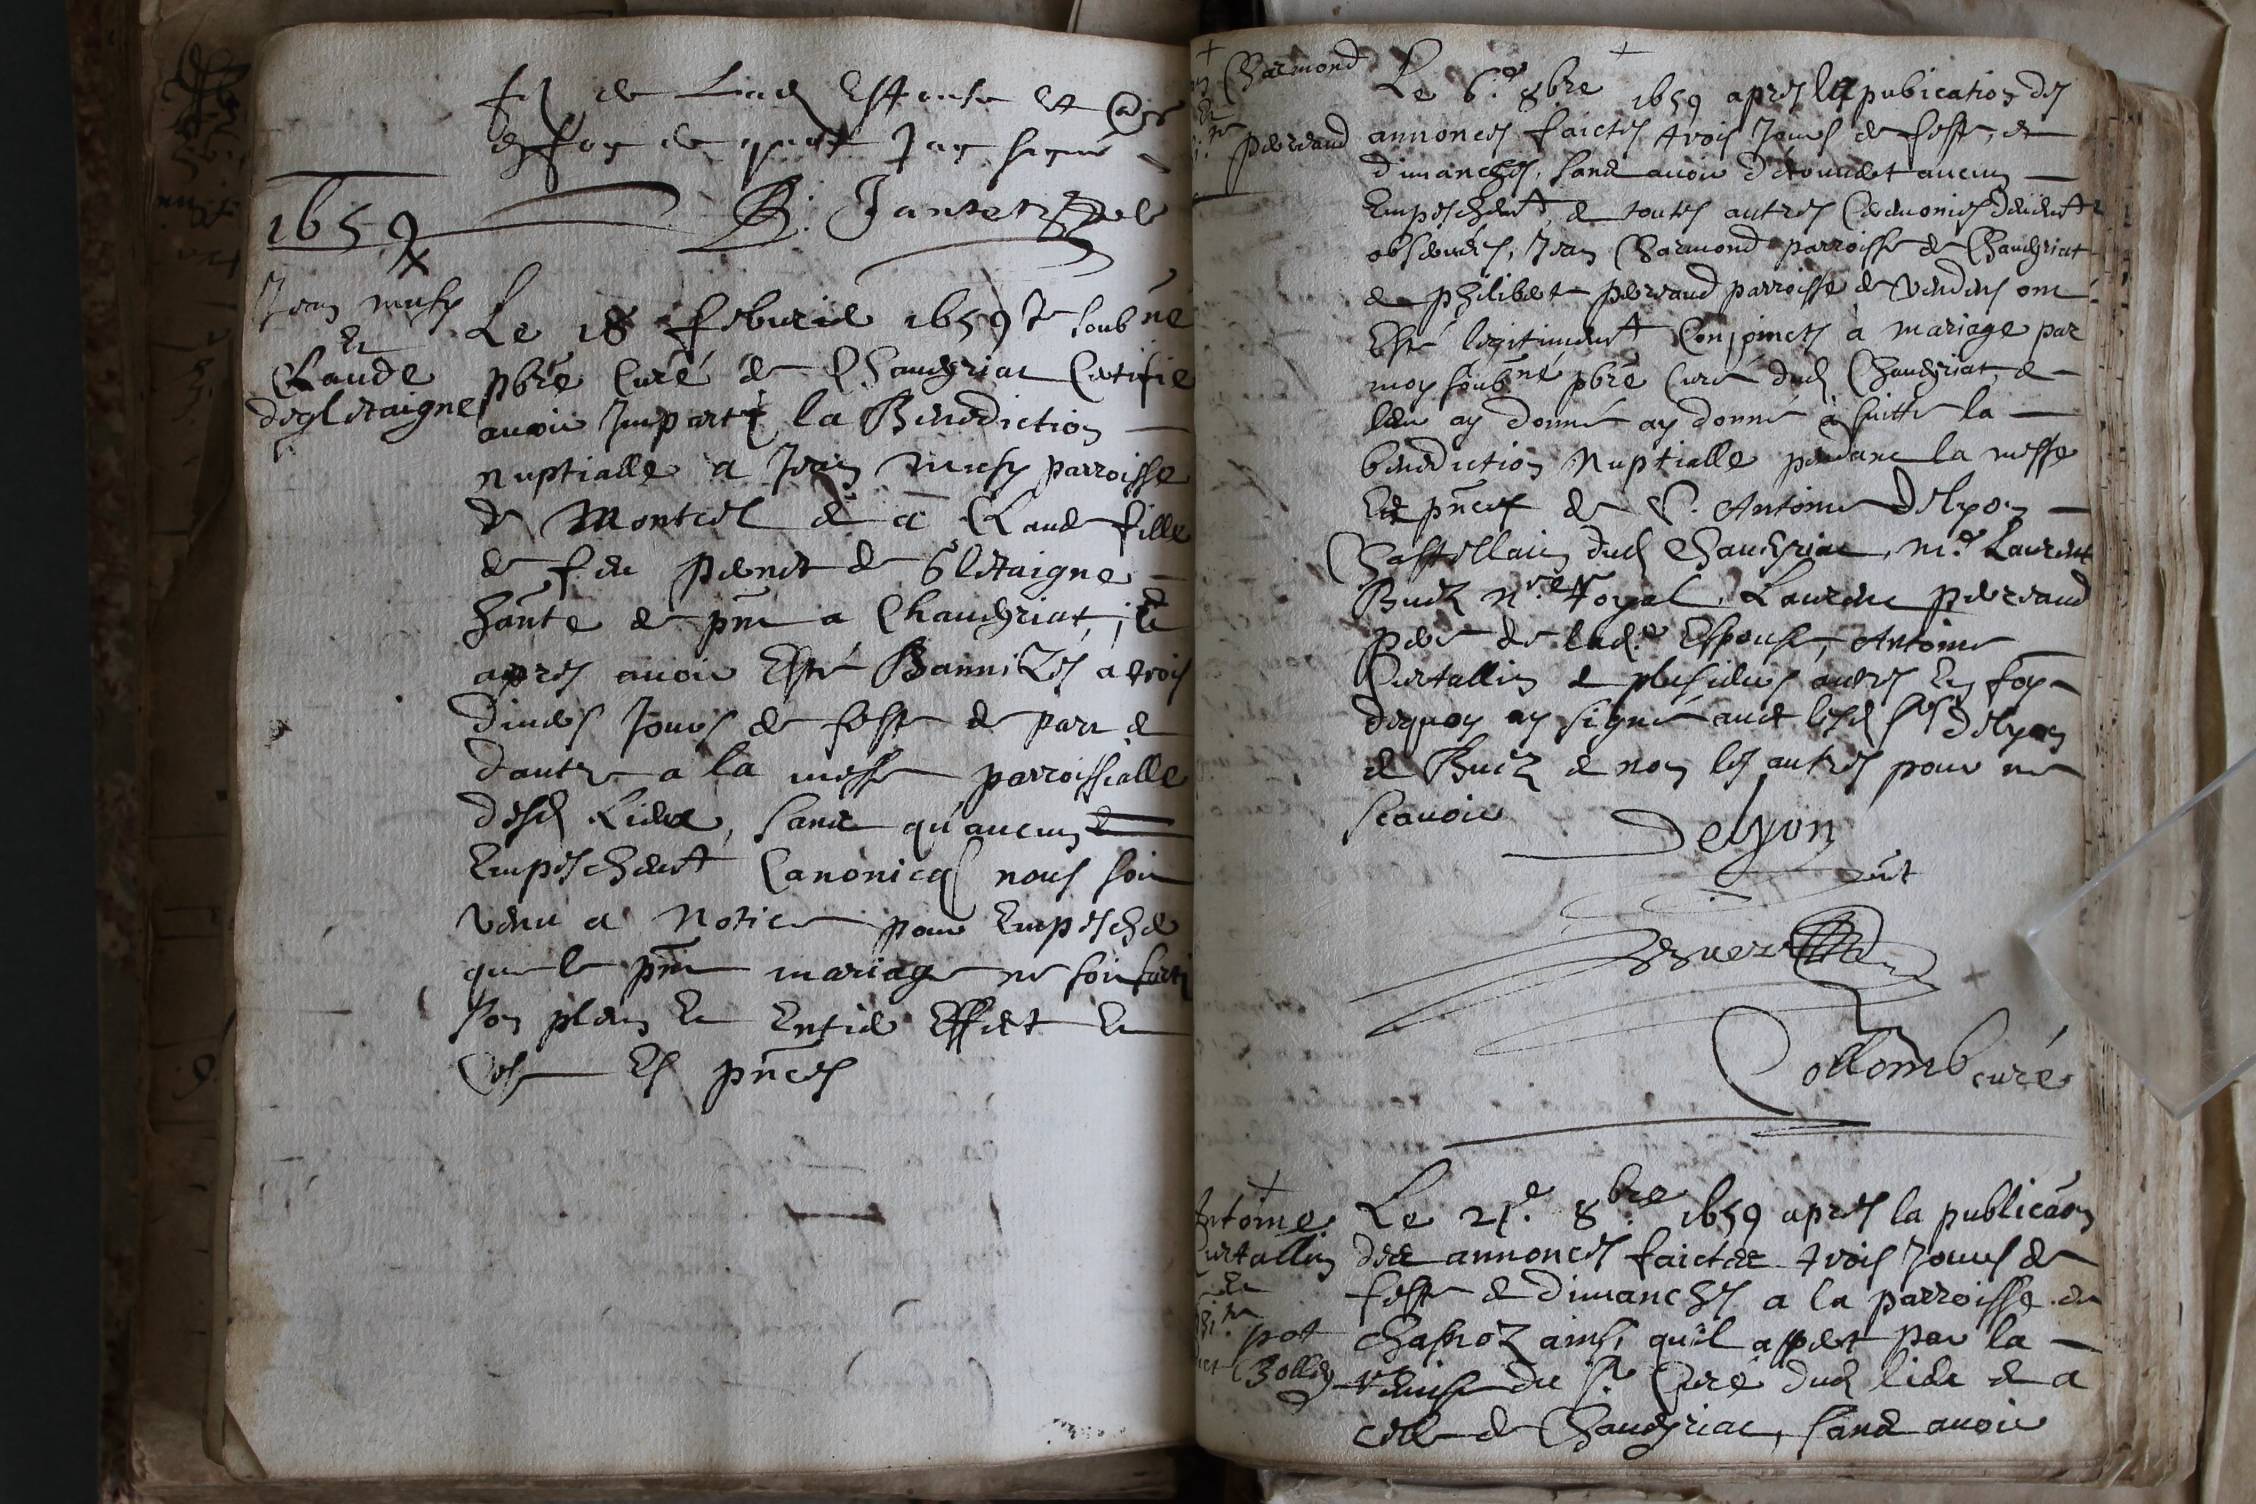 de lad Espouse et
en foy de quoy Jay signé
1659
B. Janten
Jean
Et
Claude
degletaigne
Le 18 feburier 1659 Je soubné
pbre Curé de Chaveyriat Certifie
avoir Imparti la Benediction
nuptialle a Jean parroisse
de Montcel & a Claude fille
de feu pernet de Gletaigne
hante de pnt a Chaveyriat, Et
apres avoir Esté Bannizes a trois
divers Jours de feste de part &
dautre a la messe parroissialle
desd Lieux, sans qu'aucun
Empeschemt Canonicq nous soit
venu a Notice pour Empescher
que le pnt mariage ne soit sorti
son plein Et Entier Effect Et
Es pnces
Charmond
Et
perraud
Le 6.e 8bre 1659 apres la pubication des
annonces faictes trois Jours de feste, &
dimanches, sans avoir descouvert aucun
Empeschemt, & toutes autres Ceremonies
observées, Jean Charmond parroisse de Chaveyriat
& philiberte perraud parroisse de Vendens ont
Esté legitimemt Conjoincts a mariage par
moy soubné pbre Curé dud Chaveyriat, &
leur ay donné ay donné a suitte la
benediction Nuptialle pendant la messe
Es pnces de S. Antoine delyon
Chastellain dud Chaveyriat, m.e Laurent
Buiz n.re Royal, Laurent perraud
pere de lad.e Espouse, Antoine
Curtallin & plusieurs autres En foy
dequoy ay signé avec lesd srs delyon
& Buiz & non les autres pour ne
scavoir
Delyon
Collomb curé
Antoine
Curtallin
Et
pot
Le 21.e 8.bre 1659 apres la publicaon
des annonces faictes trois Jours de
feste & dimanches a la parroisse de
chaffroz ainsi quil appert par la
remise du Sr Curé dud lieu & a
celle de Chaveyriat, sans avoir